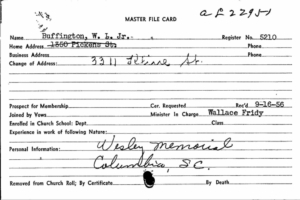 MASTER FILE CARD
Name Buffington, W. L. Jr. Register No. 5210
Home Address 1350 Pickens St. Phone
Business Address Phone
Change of Address: 3311 St.
Prospect for Membership Car. Requested Rec'd 9-16-56
Joined by Vows Minister in Charge Wallace Fridy
Enrolled in Church School: Dept. Class
Experience in work of following Nature:
Personal Information: Wesley Memorial
Columbia, S.C.
Removed from Church Roll; By Certificate By Death